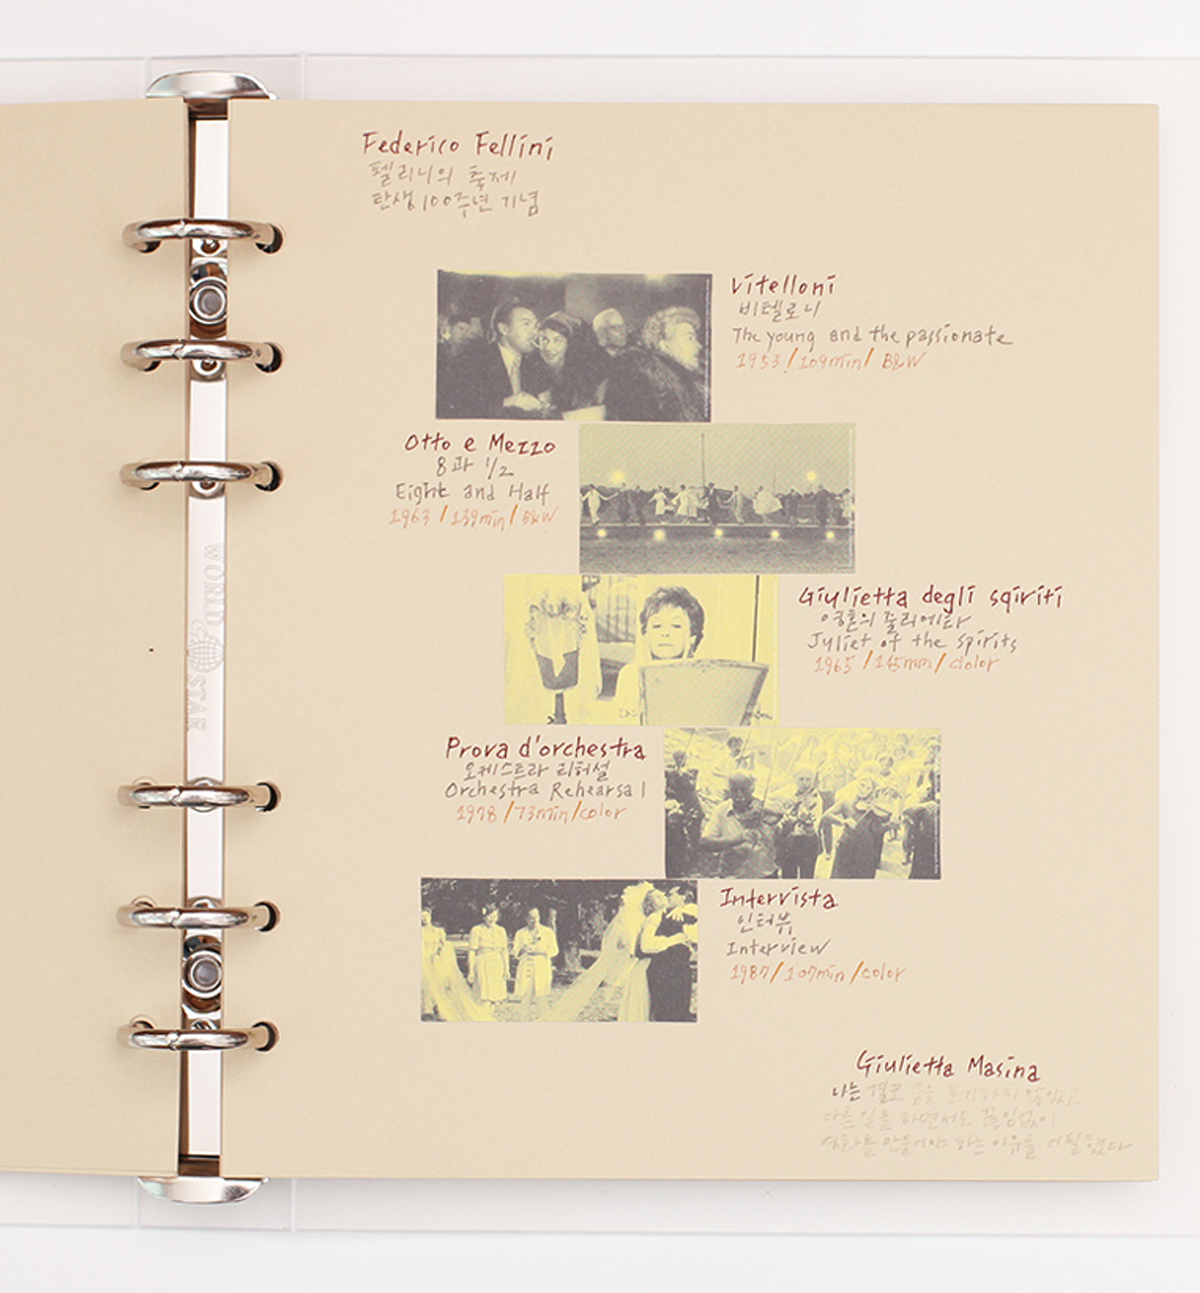 Federico Fellini
펠리니의 축제
탄생 100주년 기념
Vitelloni
비텔로니
The young and the passionate
1953 / 109min / B&W
Otto e Mezzo
8과 1/2
Eight and Half
1963 / 139min / B&W
Giulietta degli sqiriti
영혼의 줄리에타
Juliet of the Spirits
1965 / 145min / color
Prova d'orchestra
오케스트라 리허설
Orchestra Rehearsal
1978 / 73min / color
Intervista
인터뷰
Interview
1987 / 107min / color
Giulietta Masina
나는 결코 꿈을 포기하지 않았고
다른 일을 하면서도 끊임없이
영화를 만들어야 하는 이유를 어필했다
WORLD STAR